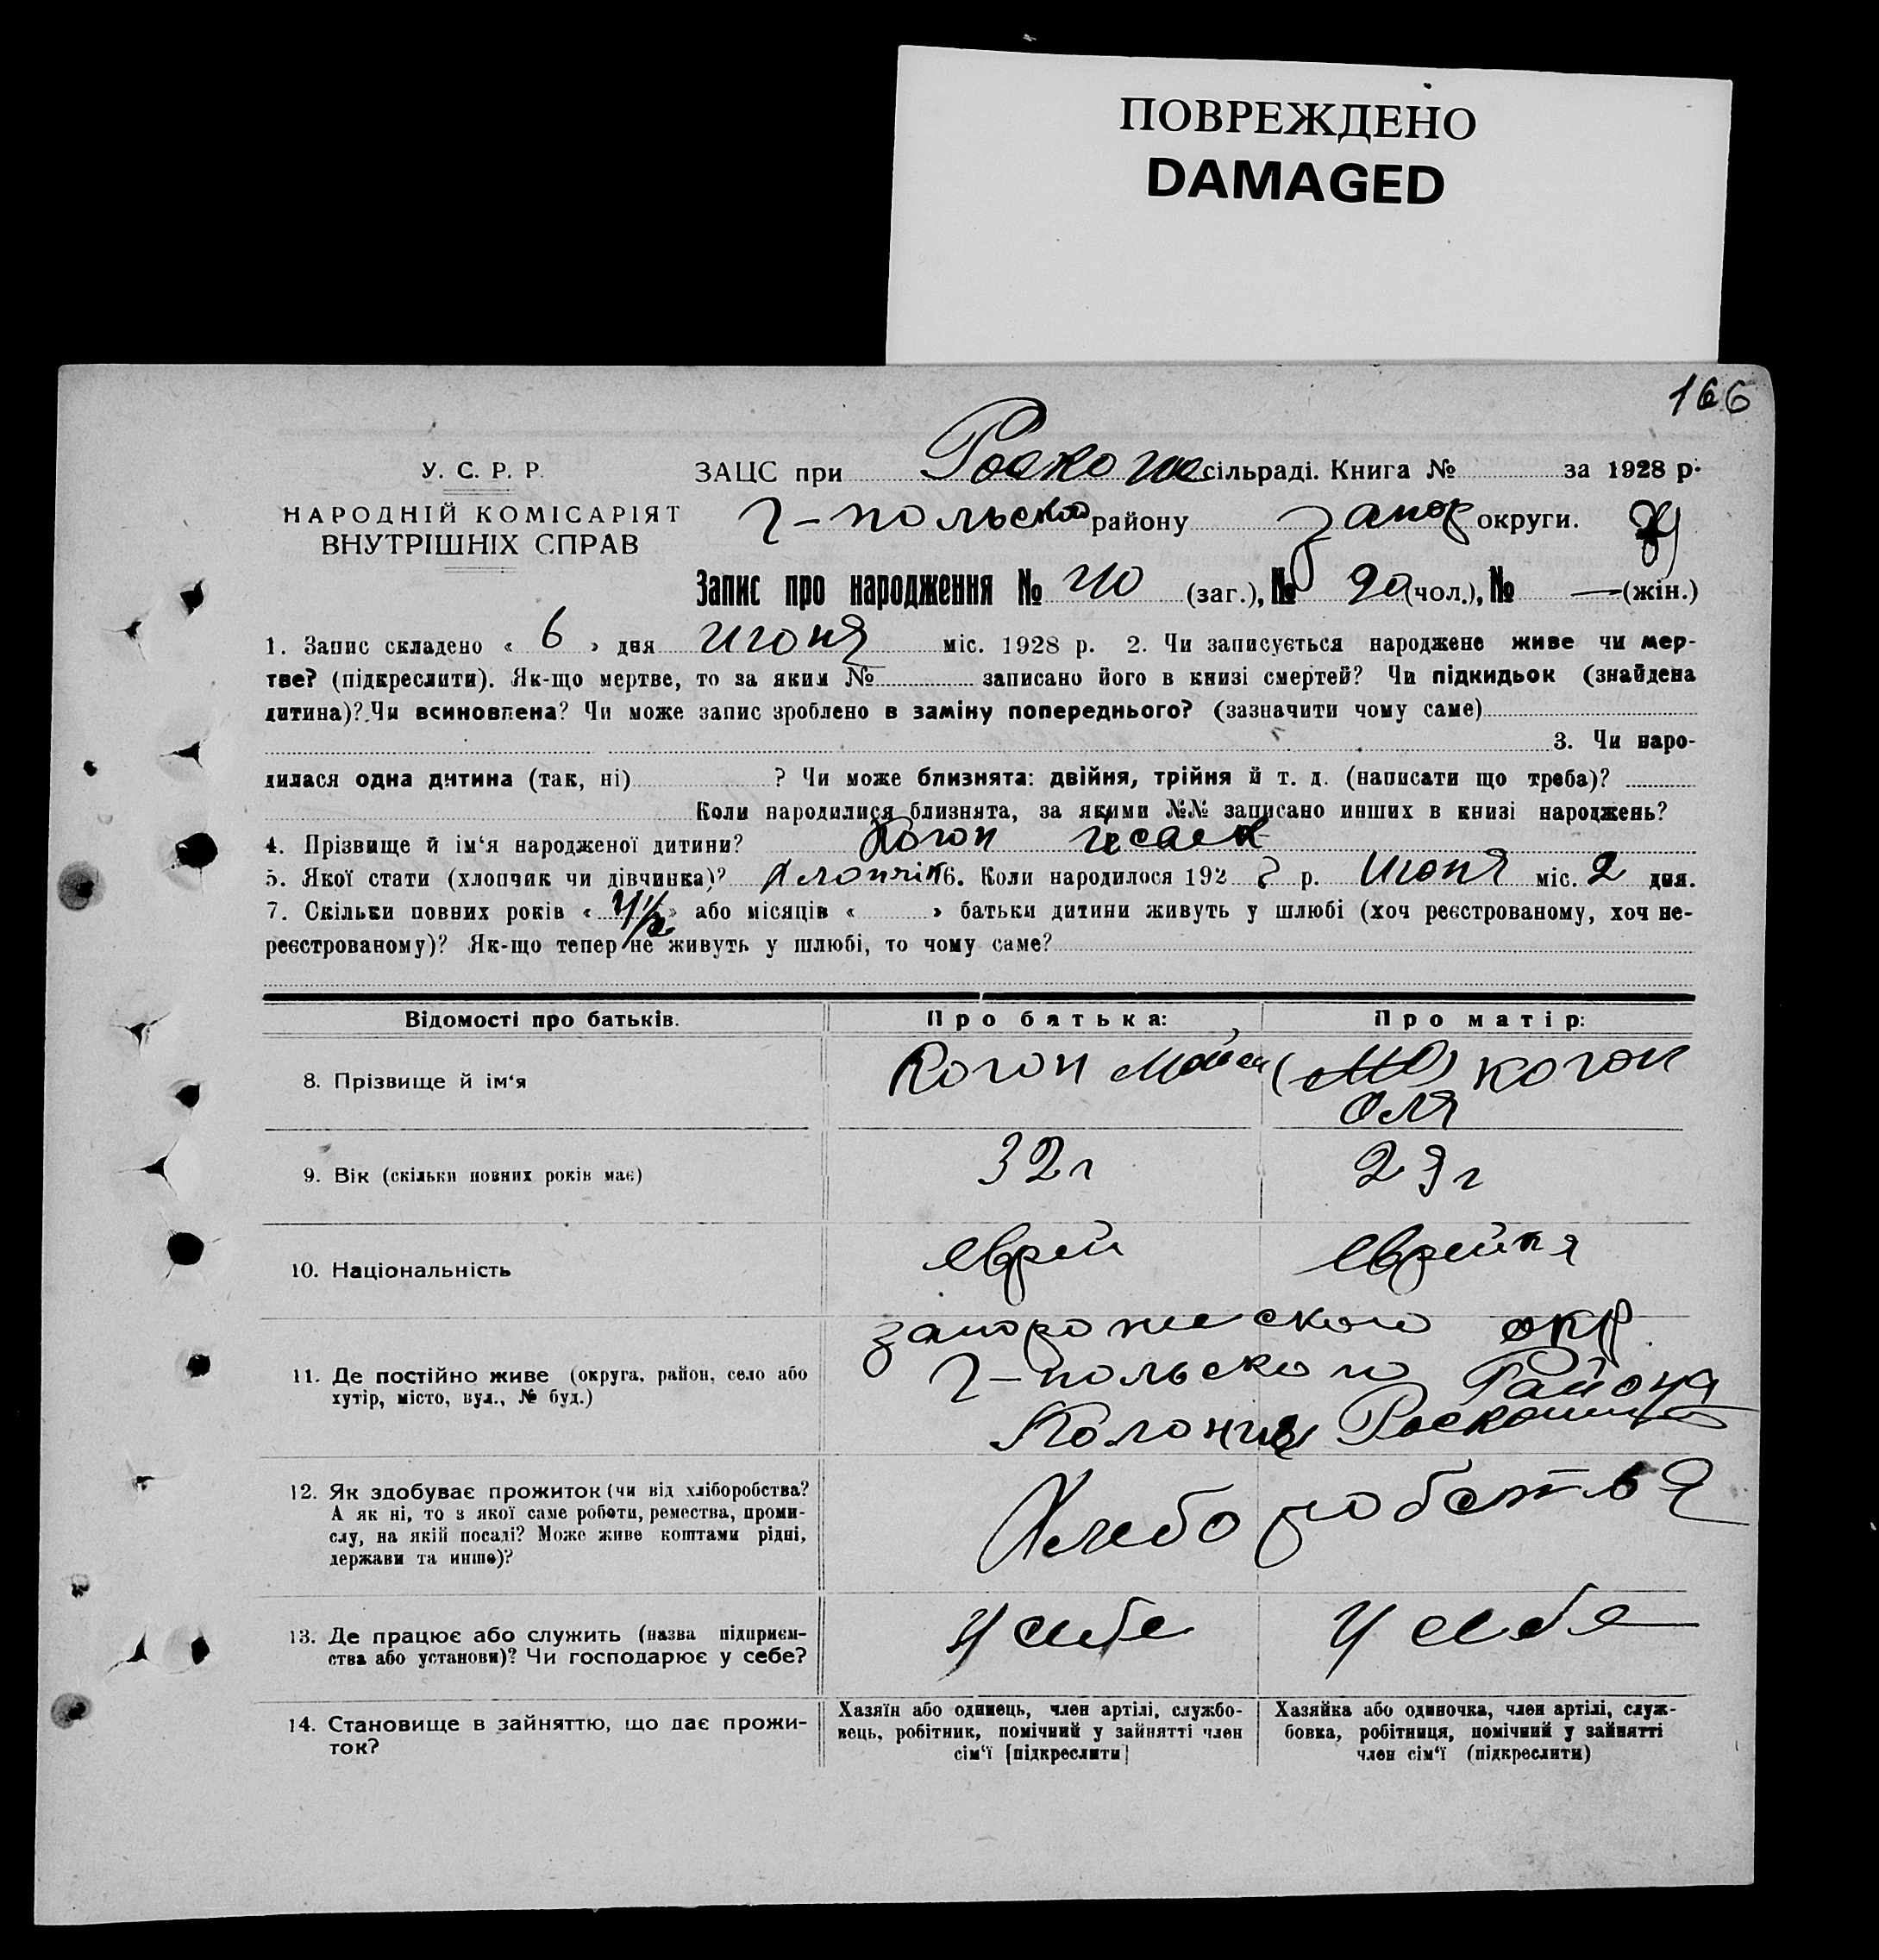 ПОВРЕЖДЕНО
DAMAGED
166
У. С. Р. Р.
НАРОДНІЙ КОМІСАРІЯТ
ВНУТРІШНІХ СПРАВ
ЗАЦС при сільраді. Книга № за 1928 р.
Г-польско району Запор округи.
Запис про народження № 40 (заг.), № 20 (чол.), № — (жін.)
1. Запис складено « 6 » дня Июня міс. 1928 р. 2. Чи записується народжене живе чи мер-
тве? (підкреслити). Як-що мертве, то за яким № записано його в книзі смертей? Чи підкидьок (знайдена
дитина)? Чи всиновлена? Чи може запис зроблено в заміну попереднього? (зазначити чому саме)
3. Чи наро-
дилася одна дитина (так, ні) ? Чи може близнята: двійня, трійня й т. д. (написати що треба)?
Коли народилися близнята, за якими №№ записано инших в книзі народжень?
4. Прізвище й ім‘я народженої дитини? Когон
5. Якої стати (хлопчик чи дівчинка)? Хлопчік 6. Коли народилося 192 8 р. Июня міс. 2 дня.
7. Скільки повних років « 4½ » або місяців « » батьки дитини живуть у шлюбі (хоч реєстрованому, хоч не-
реєстрованому)? Як-що тепер не живуть у шлюбі, то чому саме?
Відомості про батьків. Про батька: Про матір:
8. Прізвище й ім‘я Когон Когон
Оля
9. Вік (скільки повних років має) 32 г 23 г
10. Національність еврей еврейка
запорожского окр.
11. Де постійно живе (округа, район, село або
хутір, місто, вул., № буд.)
Г-польского Района
Колония
12. Як здобуває прожиток (чи від хліборобства?
А як ні, то з якої саме роботи, ремества, проми-
слу, на якій посаді? Може живе коштами рідні,
держави та инше)?
Хлеборобства
13. Де працює або служить (назва підприєм-
ства або установи)? Чи господарює у себе?
У себе У себе
14. Становище в зайняттю, що дає прожи-
ток?
Хазяїн або одинець, член артілі, службо-
вець, робітник, помічний у зайнятті член
сім‘ї [підкреслити]
Хазяйка або одиночка, член артілі, служ-
бовка, робітниця, помічний у зайнятті
член сім‘ї (підкреслити)